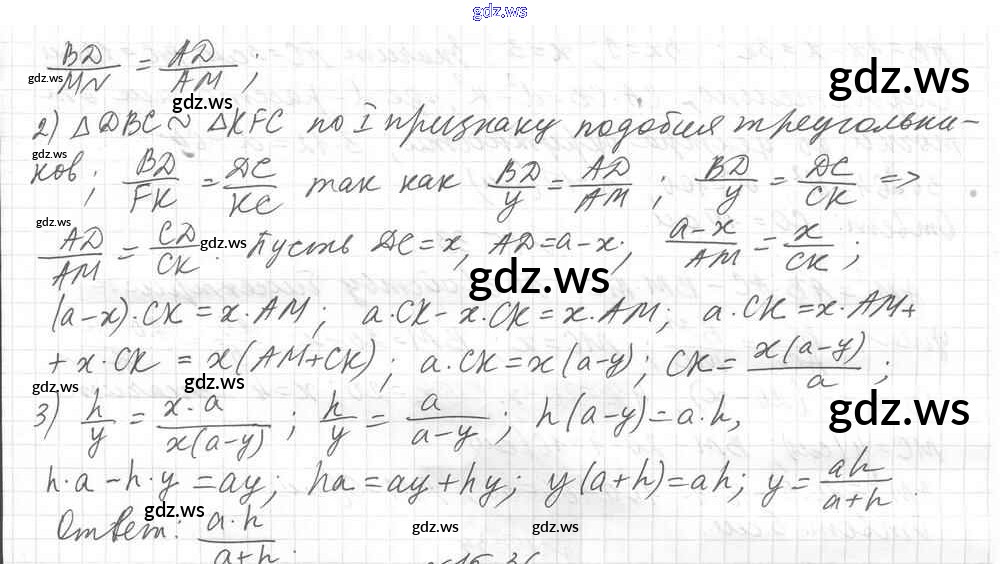 gdz.ws
BD/MN = AD/AM ;
gdz.ws
gdz.ws
gdz.ws
2) △DBC ≈ △KFC по I признаку подобия треугольни-
gdz.ws
ков; BD/FK = DC/KC так как BD/y = AD/AM ; BD/y = DC/CK =>
gdz.ws
AD/AM = CD/CK . Пусть DC = x, AD = a-x; (a-x)/AM = x/CK ;
gdz.ws
gdz.ws
(a-x)·CK = x·AM; a·CK - x·CK = x·AM; a·CK = x·AM+
+ x·CK = x(AM+CK); a·CK = x(a-y); CK = x(a-y)/a ;
gdz.ws
gdz.ws
gdz.ws
3) h/y = x·a/x(a-y) ; h/y = a/(a-y) ; h(a-y) = a·h,
h·a - h·y = ay; ha = ay + hy; y(a+h) = ah; y = ah/(a+h) .
gdz.ws
Ответ: a·h/(a+h) .
gdz.ws
gdz.ws